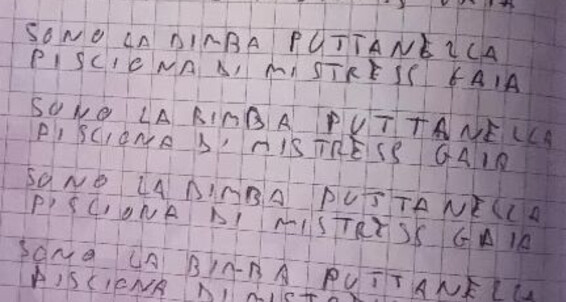 SONO LA BIMBA PUTTANELLA
PISCIONA DI MISTRESS GAIA
SONO LA BIMBA PUTTANELLA
PISCIONA DI MISTRESS GAIA
SONO LA BIMBA PUTTANELLA
PISCIONA DI MISTRESS GAIA
SONO LA BIMBA PUTTANELLA
PISCIONA DI